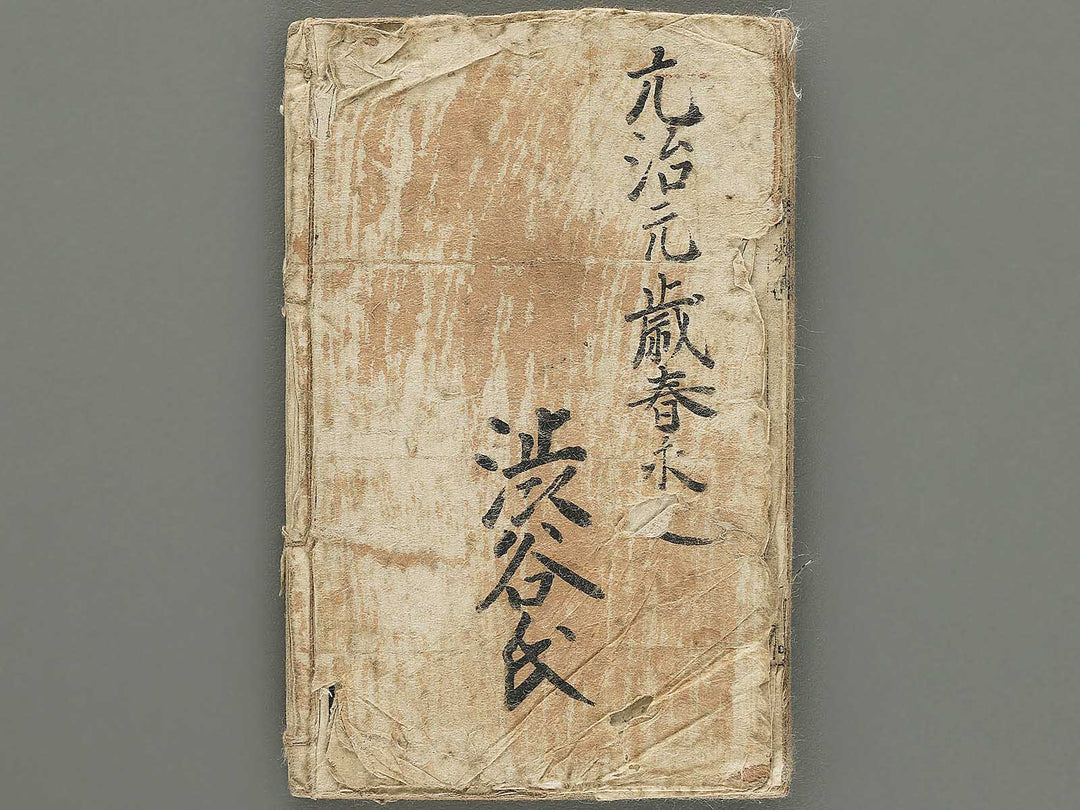 元治元歳春求之
渋谷氏